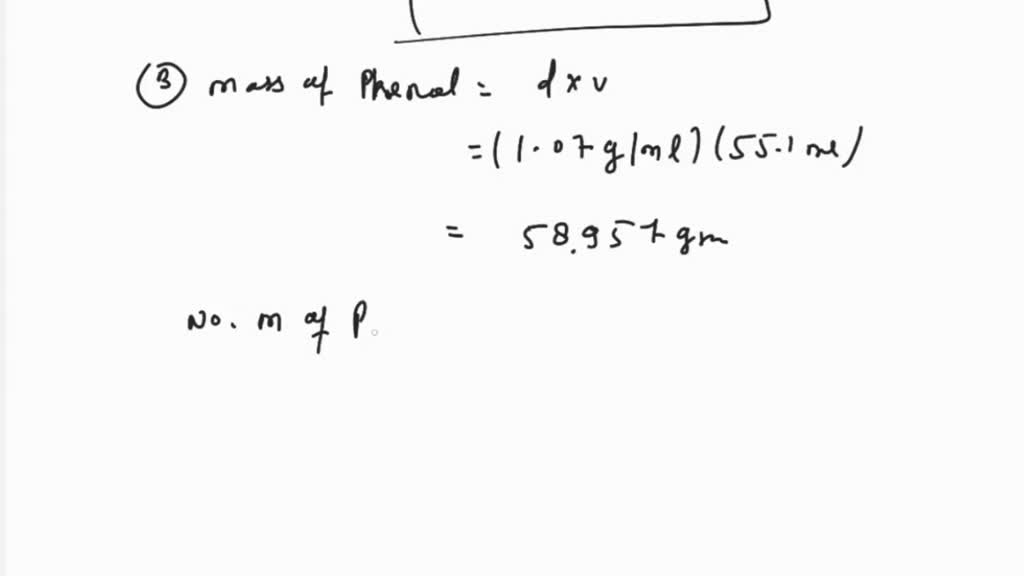 ③ mass of Phenol = d x v
= (1.07 g/ml) (55.1 ml)
= 58.957 gm
No. m of P